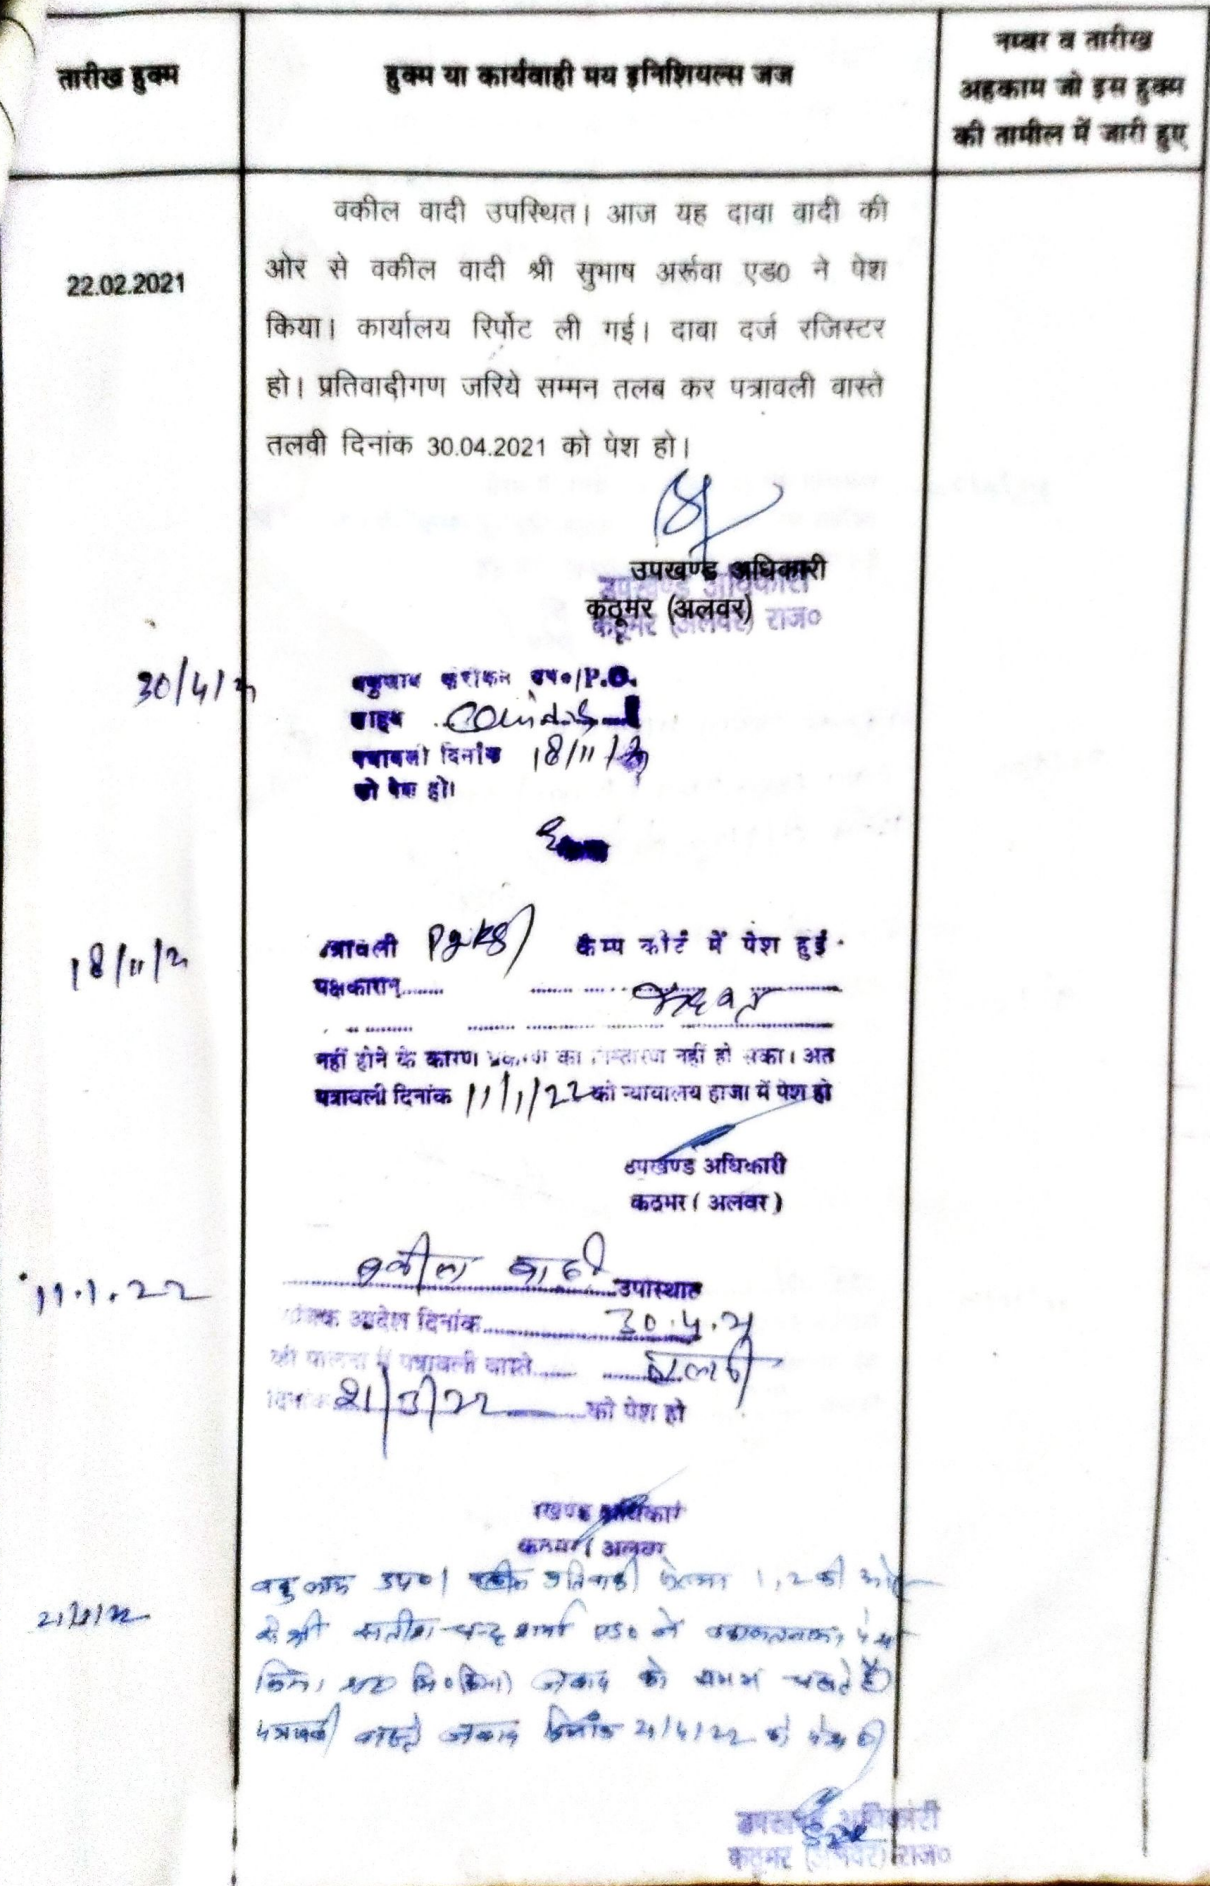 तारीख हुक्म
हुक्म या कार्यवाही मय इनिशियल्स जज
नम्बर व तारीख
अहकाम जो इस हुक्म
की तामील में जारी हुए
22.02.2021
वकील वादी उपस्थित। आज यह दावा वादी की
ओर से वकील वादी श्री सुभाष अरूंवा एड0 ने पेश
किया। कार्यालय रिर्पोट ली गई। दावा दर्ज रजिस्टर
हो। प्रतिवादीगण जरिये सम्मन तलब कर पत्रावली वास्ते
तलवी दिनांक 30.04.2021 को पेश हो।
उपखण्ड अधिकारी
कठूमर (अलवर)
उपखण्ड अधिकारी
कठूमर (अलवर) राज०
30/4/21
P.O.
पत्रावली दिनांक 18/11/21
को पेश हो।
18/11/21
त्रावली कैम्प कोर्ट में पेश हुई.
पक्षकारान्........
नहीं होने के कारण प्रकरण का निस्तारण नहीं हो सका। अत
पत्रावली दिनांक 11/1/22 को न्यायालय हाजा में पेश हो
उपखण्ड अधिकारी
कठूमर ( अलवर )
11.1.22
वकील वादी उपस्थित
आदेश दिनांक 30.4.21
की पालना में पत्रावली वास्ते तलबी
दिनांक 21/3/22 को पेश हो
खण्ड अधिकारी
कठूमर ( अलवर
प्रतिवादी 1,2 की ओर
से श्री सतीश चन्द्र शर्मा एड० ने वकालतनामा पेश
जवाब को समय चाहते है
पत्रावली वास्ते जवाब दिनांक 21/4/22 को पेश हो
उपखण्ड अधिकारी
कठूमर (अलवर) राज०